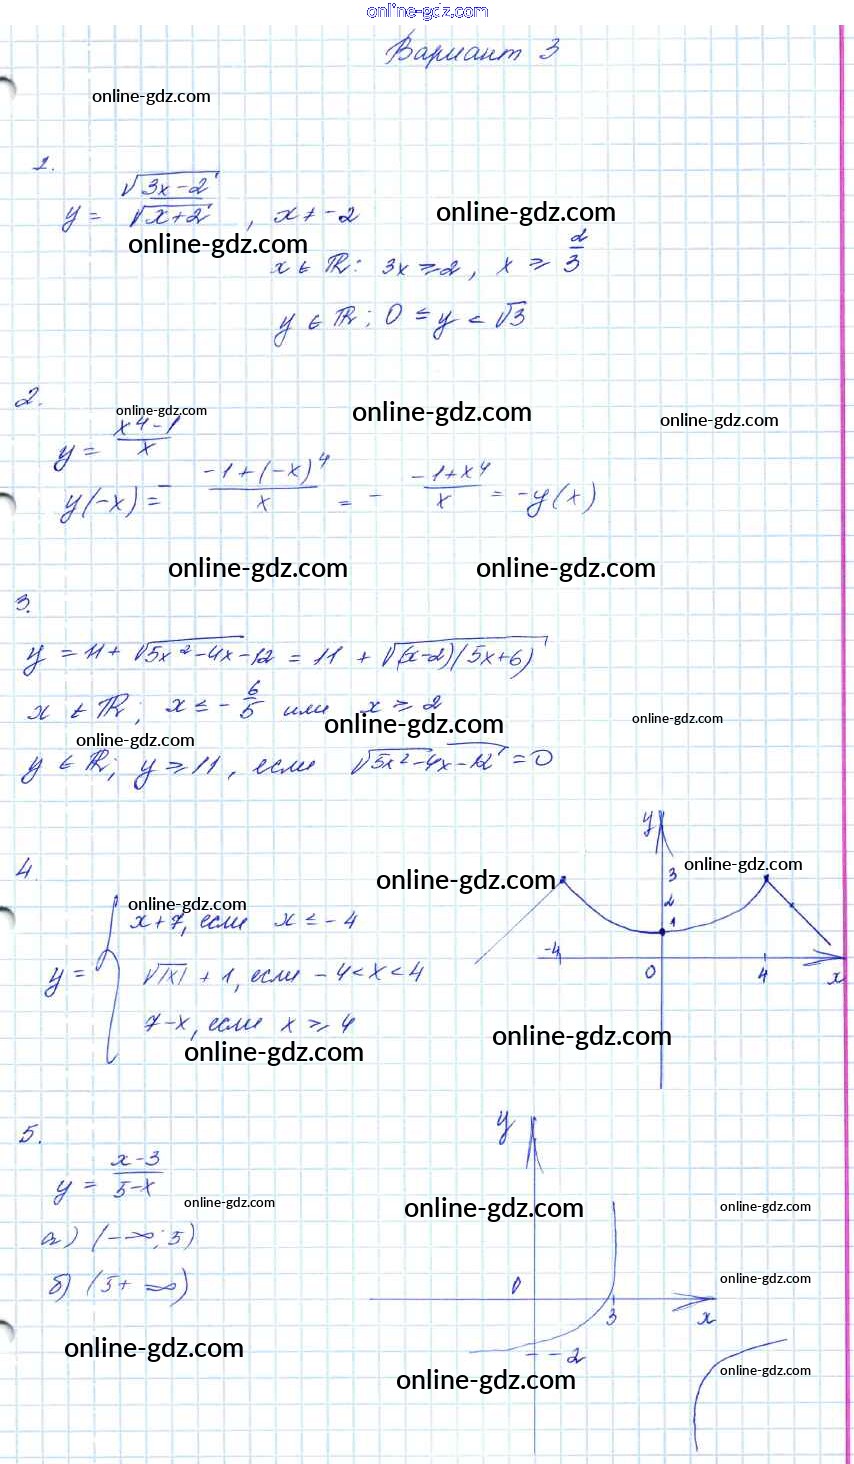 online-gdz.com
Вариант 3
online-gdz.com
1.
y = √(3x-2) / √(x+2) , x ≠ -2
online-gdz.com
online-gdz.com
x ∈ ℝ: 3x ≥ 2, x ≥ 2/3
y ∈ ℝ; 0 ≤ y < √3
2.
online-gdz.com
online-gdz.com
online-gdz.com
y = (x⁴-1)/x
y(-x) = - (-1+(-x)⁴)/x = - (-1+x⁴)/x = -y(x)
online-gdz.com
online-gdz.com
3.
y = 11 + √(5x²-4x-12) = 11 + √((x-2)(5x+6))
x ∈ ℝ; x ≤ -6/5 или x ≥ 2
online-gdz.com
online-gdz.com
online-gdz.com
y ∈ ℝ; y ≥ 11, если √(5x²-4x-12) = 0
4.
online-gdz.com
online-gdz.com
online-gdz.com
y = { x+7, если x ≤ -4
√|x| + 1, если -4 < x < 4
7-x, если x ≥ 4
y
3
2
1
-4
0
4
x
online-gdz.com
online-gdz.com
5.
y = (x-3)/(5-x)
online-gdz.com
online-gdz.com
online-gdz.com
а) (-∞; 5)
б) (5+ ∞)
y
0
3
x
-2
online-gdz.com
online-gdz.com
online-gdz.com
online-gdz.com